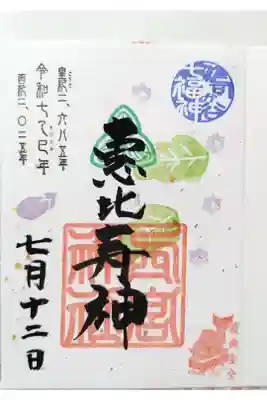 七福神
恵比寿神
西宮
神社
皇紀二、六八五年
令和七乙巳年
西暦二、〇二五年
七月十二日